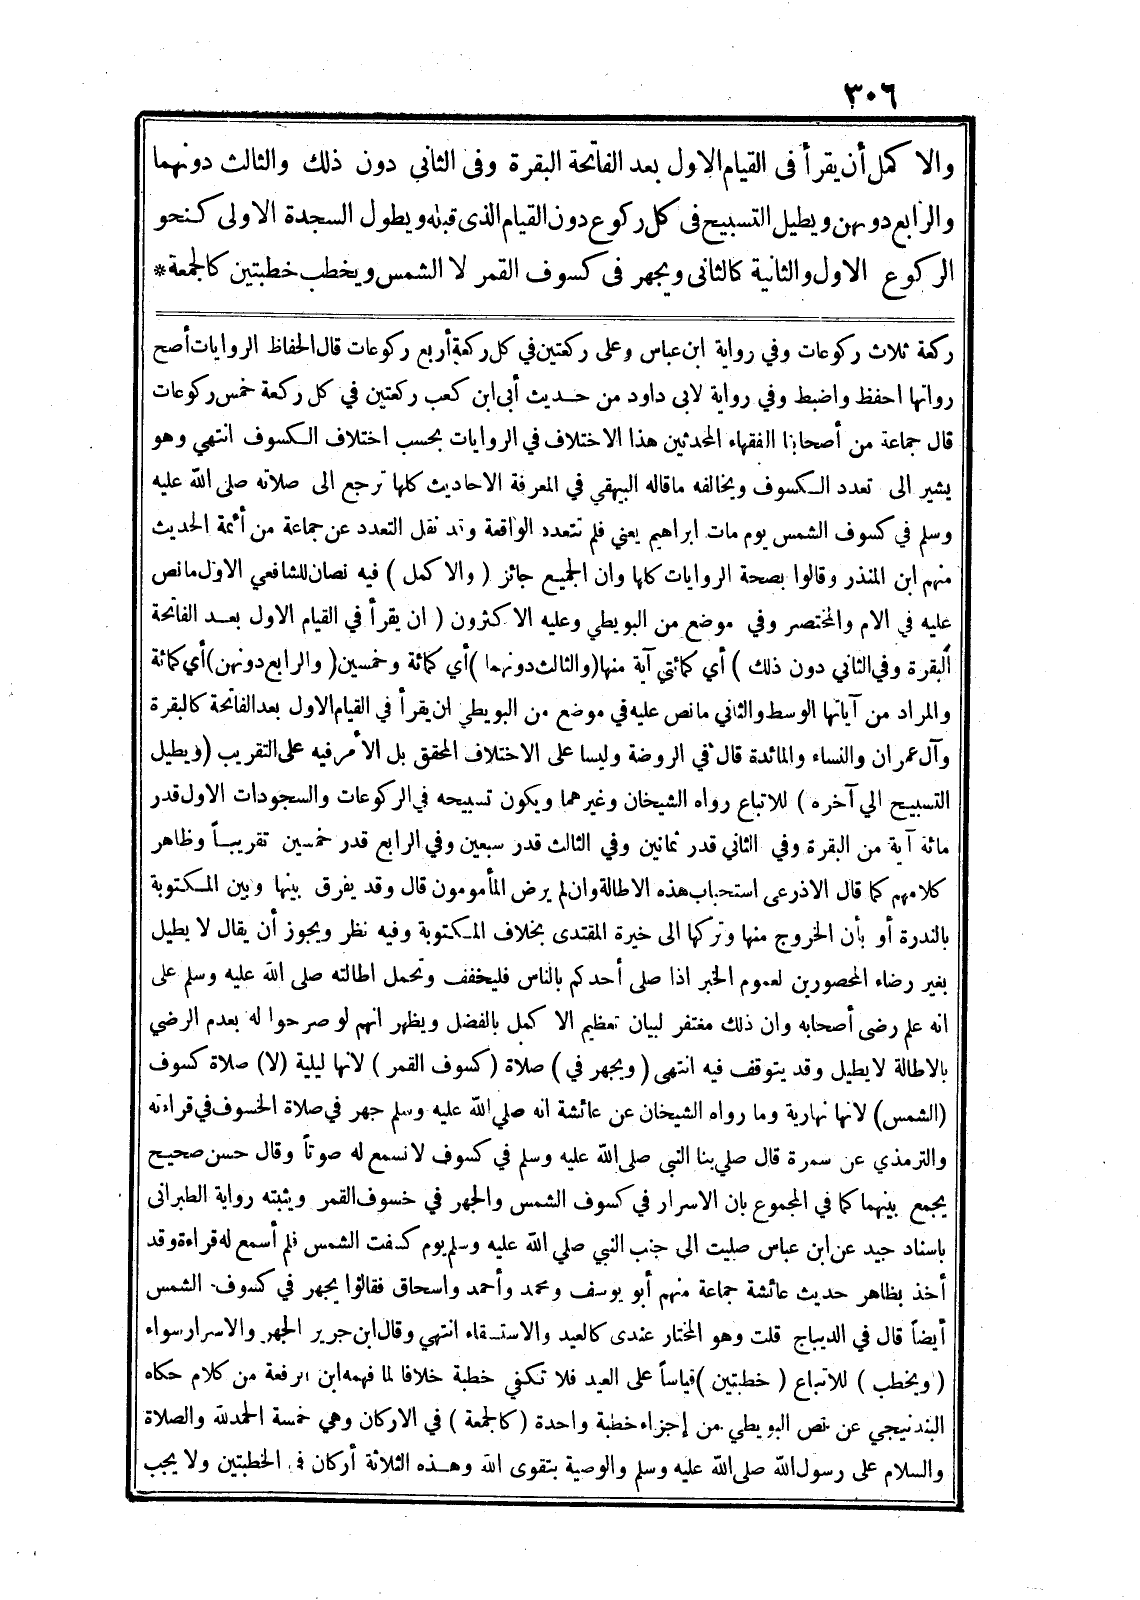 ٣٠٦
والاكمل أن يقرأ فى القيام الاول بعد الفاتحة البقرة وفى الثاني دون ذلك والثالث دونهما
والرابع دونهن ويطيل التسبيح فى كل ركوع دون القيام الذى قبله ويطول السجدة الاولى كنحو
الركوع الاول والثانية كالثانى ويجهر فى كسوف القمر لا الشمس ويخطب خطبتين كالجمعة *
ركعة ثلاث ركوعات وفي رواية ابن عباس وعلى ركعتين في كل ركعة أربع ركوعات قال الحفاظ الروايات أصح
رواتها احفظ واضبط وفي رواية لابى داود من حديث أبى ابن كعب ركعتين في كل ركعة خمس ركوعات
قال جماعة من أصحابنا الفقهاء المحدثين هذا الاختلاف في الروايات بحسب اختلاف الكسوف انتهي وهو
يشير الى تعدد الكسوف ويخالفه ماقاله البيهقي في المعرفة الاحاديث كلها ترجع الى صلاته صلى الله عليه
وسلم في كسوف الشمس يوم مات ابراهيم يعني فلم تتعدد الواقعة وقد نقل التعدد عن جماعة من أئمة الحديث
منهم ابن المنذر وقالوا بصحة الروايات كلها وان الجميع جائز ( والاكمل ) فيه نصان للشافعي الاول مانص
عليه في الام والمختصر وفي موضع من البويطي وعليه الاكثرون ( ان يقرأ في القيام الاول بعد الفاتحة
البقرة وفي الثاني دون ذلك ) أي كمائتي آية منها (والثالث دونهما ) أي كمائة وخمسين ( والرابع دونهن) أي كمائة
والمراد من آياتها الوسط والثاني مانص عليه في موضع من البويطي ان يقرأ في القيام الاول بعد الفاتحة كالبقرة
وآل عمران والنساء والمائدة قال في الروضة وليسا على الاختلاف المحقق بل الأمر فيه على التقريب (ويطيل
التسبيح الي آخره ) للاتباع رواه الشيخان وغيرهما ويكون تسبيحه في الركوعات والسجودات الاول قدر
مائة آية من البقرة وفي الثاني قدر ثمانين وفي الثالث قدر سبعين وفي الرابع قدر خمسين تقريباً وظاهر
كلامهم كما قال الاذرعى استحباب هذه الاطالة وان لم يرض المأمومون قال وقد يفرق بينها وبين المكتوبة
بالندرة أو بأن الخروج منها وتركها الى خيرة المقتدى بخلاف المكتوبة وفيه نظر ويجوز أن يقال لا يطيل
بغير رضاء المحصورين لعموم الخبر اذا صلى أحدكم بالناس فليخفف وتحمل اطالته صلى الله عليه وسلم على
انه علم رضى أصحابه وان ذلك مغتفر لبيان تعظيم الاكمل بالفضل ويظهر انهم لو صرحوا له بعدم الرضي
بالاطالة لا يطيل وقد يتوقف فيه انتهى ( ويجهر في ) صلاة ( كسوف القمر ) لانها ليلية (لا) صلاة كسوف
(الشمس) لانها نهارية وما رواه الشيخان عن عائشة انه صلي الله عليه وسلم جهر في صلاة الخسوف في قراءته
والترمذي عن سمرة قال صلي بنا النبي صلى الله عليه وسلم في كسوف لا نسمع له صوتاً وقال حسن صحيح
يجمع بينهما كما في المجموع بان الاسرار في كسوف الشمس والجهر في خسوف القمر ويثبته رواية الطبرانى
باسناد جيد عن ابن عباس صليت الى جنب النبي صلي الله عليه وسلم يوم كسفت الشمس فلم أسمع له قراءة وقد
أخذ بظاهر حديث عائشة جماعة منهم أبو يوسف ومحمد وأحمد واسحاق فقالوا يجهر في كسوف الشمس
أيضاً قال في الديباج قلت وهو المختار عندى كالعيد والاستسقاء انتهي وقال ابن جرير الجهر والاسرار سواء
( ويخطب ) للاتباع ( خطبتين ) قياساً على العيد فلا تكفي خطبة خلافا لما فهمه ابن الرفعة من كلام حكاه
البندنيجي عن نص البويطي من إجزاء خطبة واحدة ( كالجمعة ) في الاركان وهي خمسة الحمد لله والصلاة
والسلام على رسول الله صلى الله عليه وسلم والوصية بتقوى الله وهذه الثلاثة أركان في الخطبتين ولا يجب